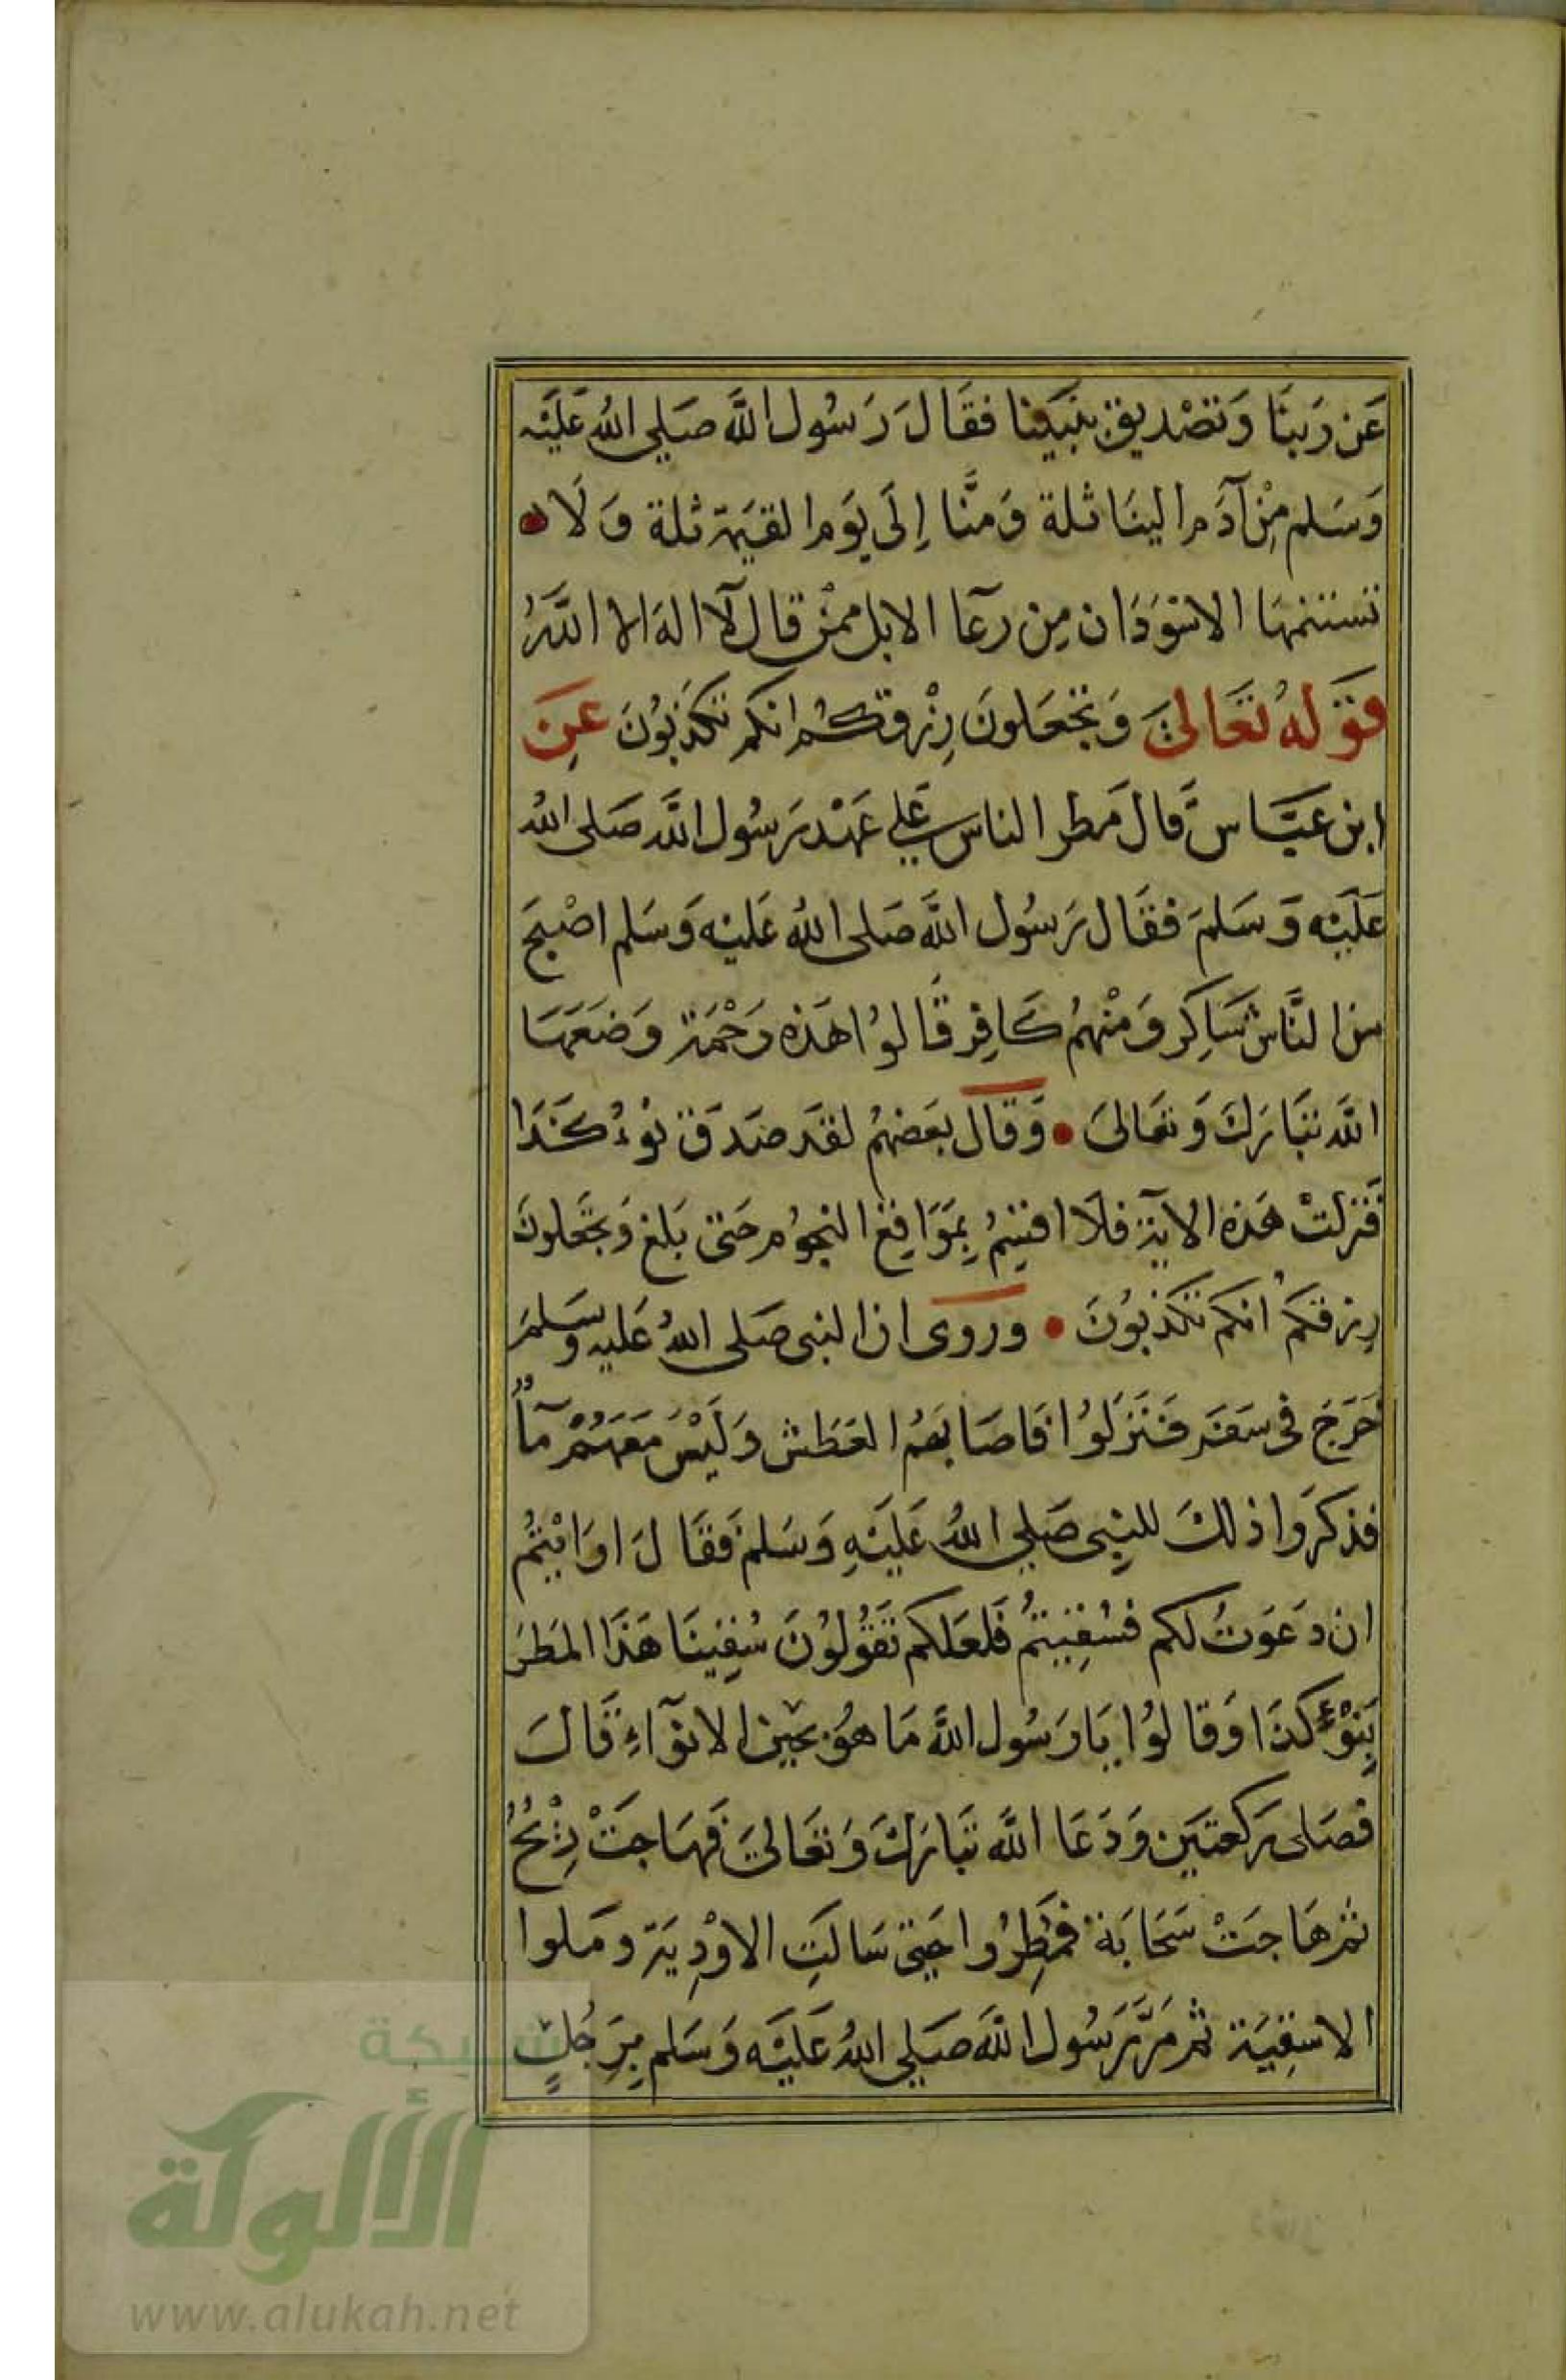 عَن رَبنَا وَتصْديق نبَينا فقَالَ رَسُول اللَّه صَلى اللهُ عَليَه
وَسَلم مِنْ آدَم الينَا ثلة وَمنَّا إِلَى يَوم القيَمة ثلة وَلَا
تستتمهَا الاسْوَدَان مِن رعَآ الابل ممنْ قال لآ اله الا اللَّهُ
قوَلهُ تعَالىَ وَتجْعَلونَ رِزْقكُم انكم تكذبُونَ عَنِ
ابن عَبَّاس قَال مَطر الناس عَلي عَهْد رَسُول اللَّه صَلى اللهُ
عَليَه وَسَلمَ فقَال رَسُول اللَّه صَلى اللهُ عَليْه وَسَلم اصْبحَ
من النَّاس شَاكِر وَمنْهمُ كَافِر قَالوُا هَذه رَحْمَة وَضعَهَا
اللَّه تبَارَكَ وَتعَالىَ • وَقَال بعَضهمُ لقد صَدَق نوْءُ كَذَا
فَنزلتْ هَذه الاية فلَا اقسِمُ بِموَاقِع النجوُم حَتى بَلغ وَتجْعَلونَ
رِزقكمُ انكم تكذبوُنَ • وروى ان النبى صَلى اللهُ عَليه وسَلمَ
خَرَجَ فى سَفَر فَنَزَلوُا فَاصَابَهُم العَطَش وَليْسَ مَعَهُمْ مآءٌ
فذكرَوا ذلكَ للنبِى صَلى اللهُ عَليَهِ وَسَلمَ فَقَالَ ارَايْتمُ
ان دَعَوتُ لكم فسُقِيتمُ فَلعَلكم تقوُلوُنَ سُقِينَا هَذَا المَطَرَ
بِنوْءِ كذَا وَقالوُا يَا رَسُول اللَّه مَا هوَ بحِين الانوَآءِ قَالَ
فصَلى رَكعتَين وَدَعَا اللَّه تبَارَكَ وَتعَالىَ فهَاجَتْ رِيْحٌ
ثم هَاجَتْ سَحَابَة فمُطِرُوا حَتى سَالَتِ الاوْدِيَة وَمَلوا
الاسْقِيَة ثم مَرَّ رَسُول اللَّه صَلى اللهُ عَليَه وَسَلم بِرَجُلٍ
شبكة
الألوكة
www.alukah.net